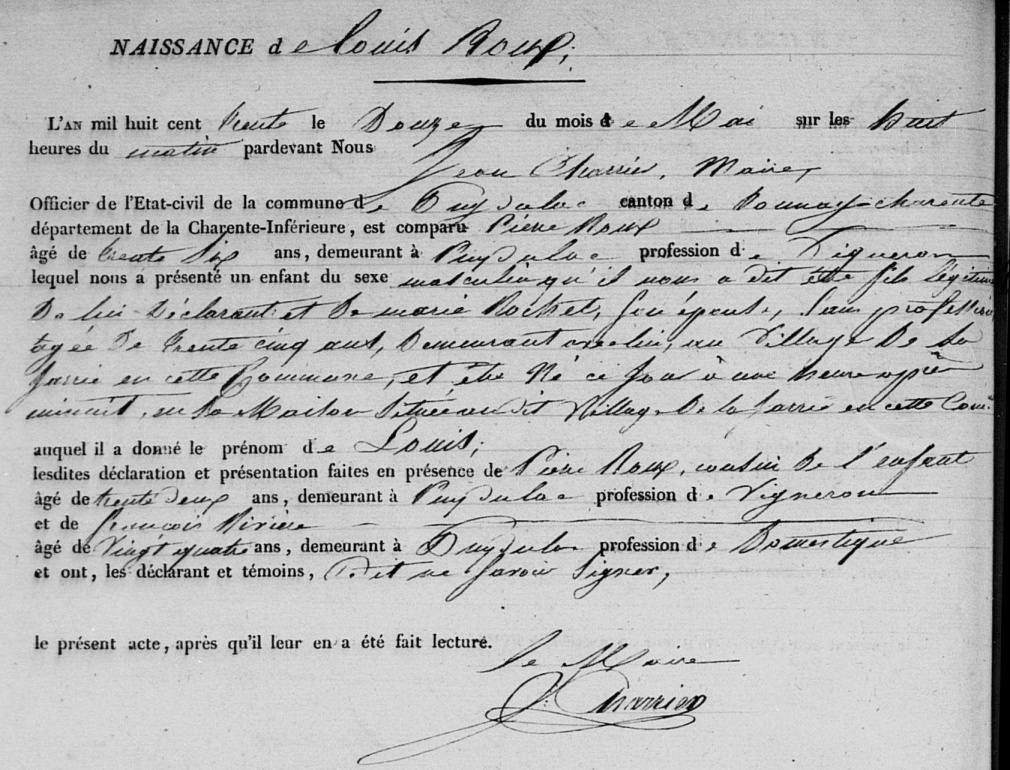 NAISSANCE de Louis Roux;
L'AN mil huit cent trente le Douze du mois de Mai sur les huit
heures du matin pardevant Nous
Jean Charrier, Maire,
Officier de l'Etat-civil de la commune de Puydulac canton de Tonnay-charente
département de la Charente-Inférieure, est comparu Pierre Roux
âgé de trente Six ans, demeurant à Puydulac profession de Vigneron
lequel nous a présenté un enfant du sexe masculin qu'il nous a dit être fils légitime
De lui Déclarant et De marie Rochet, Son épouse, Sans profession
agée De trente cinq ans, Demeurant avec lui, au Village De La
Jarrie en cette Commune, et être Né ce Jour à une heure après
minuit, en Sa Maison Située au dit Village De la Jarrie en cette Com.e
auquel il a donné le prénom de Louis;
lesdites déclaration et présentation faites en présence de Pierre Roux, cousin De l'enfant
âgé de trente deux ans, demeurant à Puydulac profession de Vigneron
et de François Rivière
âgé de Vingt quatre ans, demeurant à Puydulac profession de Domestique
et ont, les déclarant et témoins, Dit ne Savoir Signer,
le présent acte, après qu'il leur en a été fait lecture.
le Maire
J. Charrier